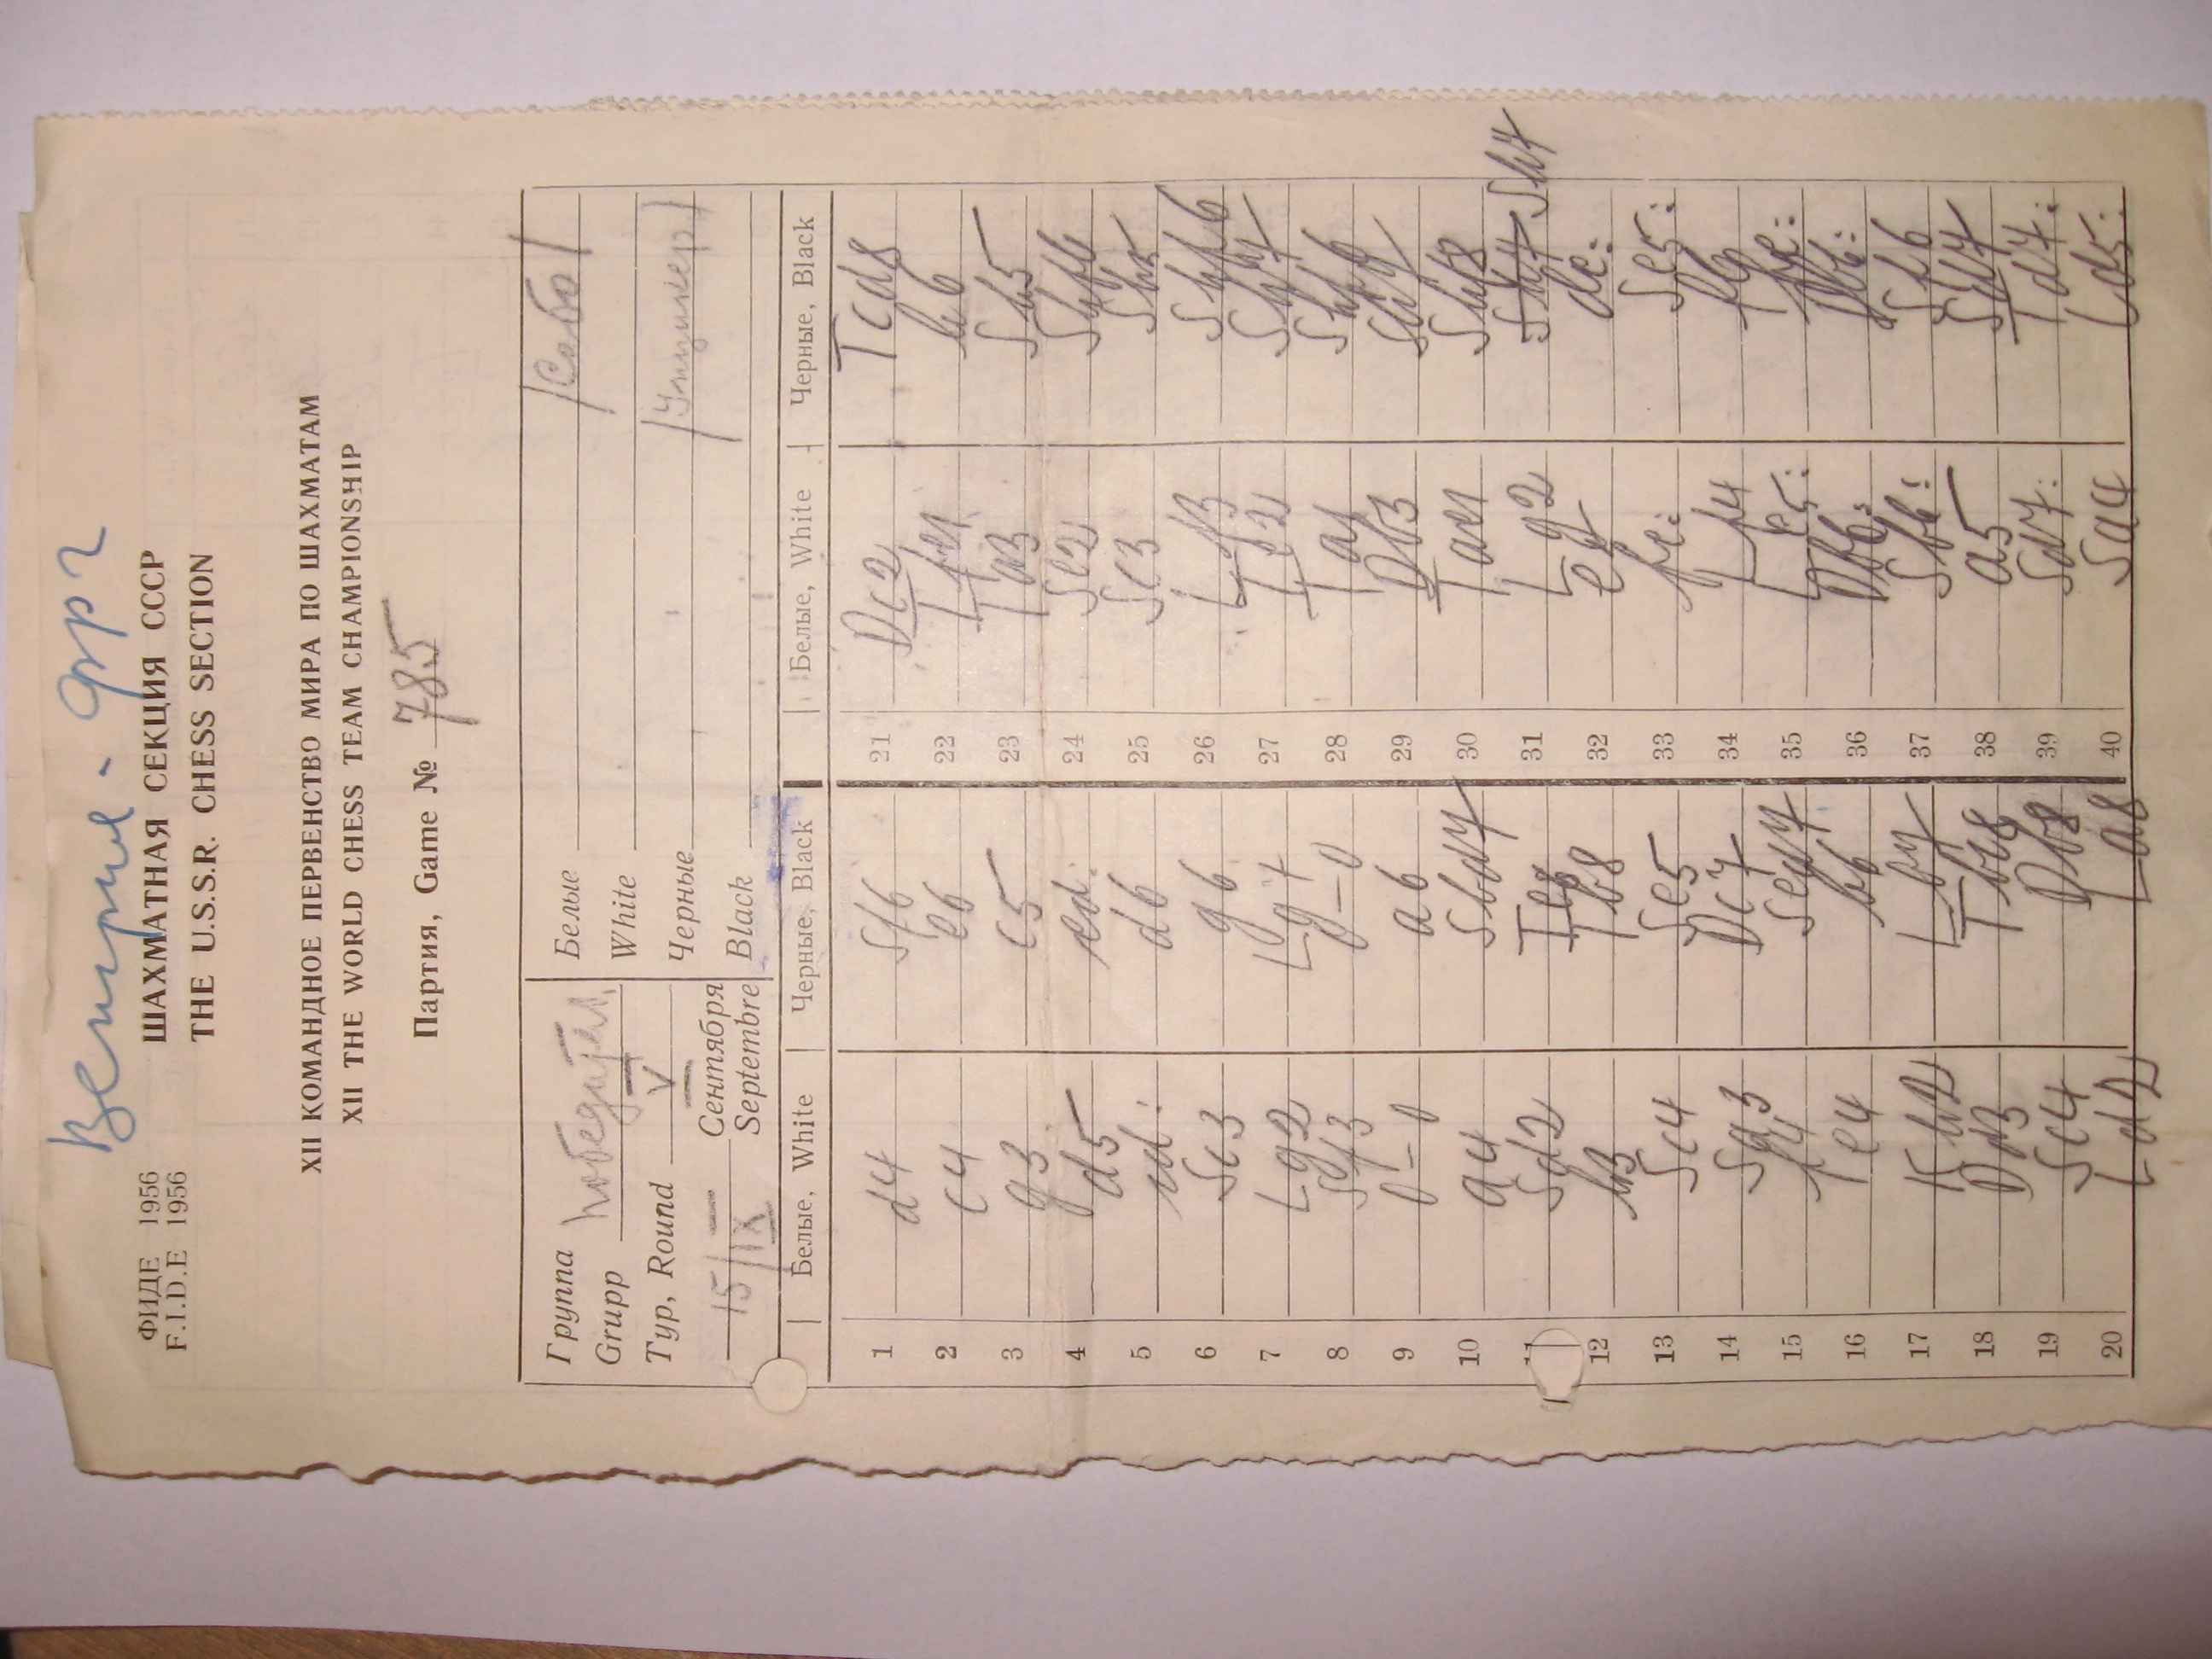 Венгрия - ФРГ
ФИДЕ 1956
F.I.D.E 1956
ШАХМАТНАЯ СЕКЦИЯ СССР
THE U.S.S.R. CHESS SECTION
XII КОМАНДНОЕ ПЕРВЕНСТВО МИРА ПО ШАХМАТАМ
XII THE WORLD CHESS TEAM CHAMPIONSHIP
Партия, Game № 785
Группа
Grupp
Тур, Round V
15/IX Сентября
Septembre
Белые
White /Сабо/
Черные
Black /Унцикер/
Белые, White Черные, Black Белые, White Черные, Black
1 d4 Sf6 21 Dc2 Tcd8
2 c4 e6 22 Tfe1 h6
3 g3 c5 23 Ta3 Sh5
4 d5 ed: 24 Se2
5 cd: d6 25 Sc3
6 Sc3 g6 26 Lf3
7 Lg2 Lg7 27
8 Sf3 0-0 28 Ta1
9 0-0 a6 29 Db3
10 a4 Sbd7 30 Tae1
11 Sd2 Te8 31 Lg2 Sh7
12 h3 Tb8 32 eg de:
13 Sc4 Se5 33 fe: Se5:
14 Sa3 Dc7 34 Lf4 fg
15 f4 Sed7 35 Le5:
16 e4 b6 36 Db6: Db6:
17 Kh2 Lb7 37 Sb6: Sf6
18 Dd3 38 a5 Sd7
19 Sc4 Db8 39 Sd7: Td7:
20 Ld2 La8 40 Sa4 Ld5: